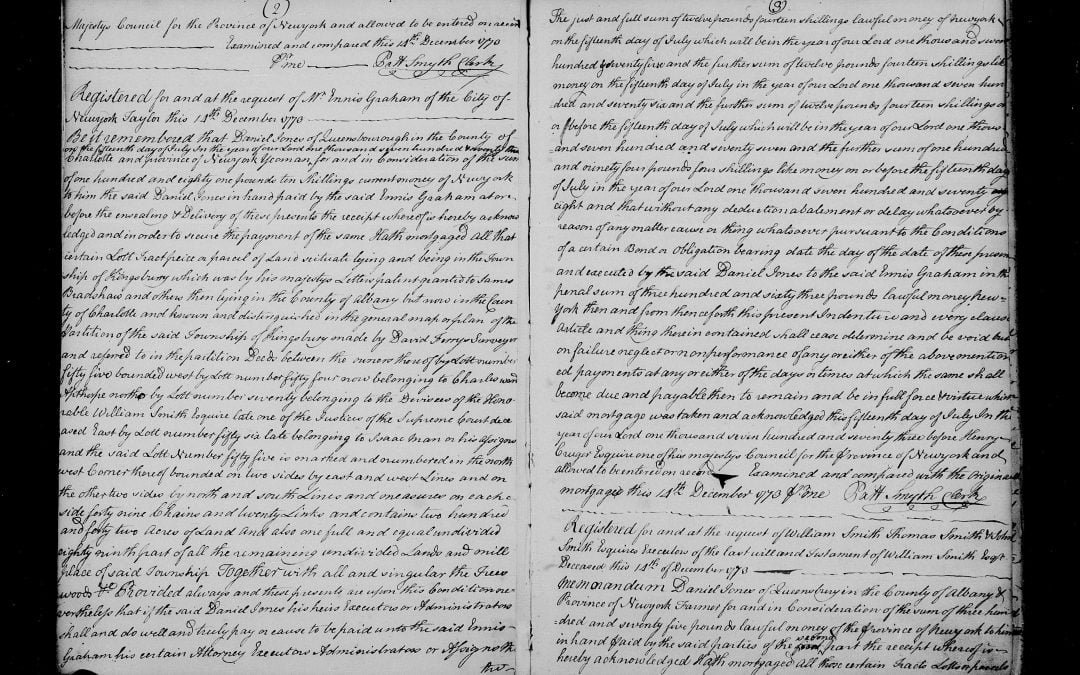 (2)
Majestys Council for the Province of Newyork and allowed to be entered on record
Examined and compared this 14th December 1773
Pr me Patt Smyth Clerk
Registered for and at the request of Mr Ennis Graham of the City of
Newyork Taylor this 14th December 1773
Be it remembered that Daniel Jones of Queensbourough in the County of
on the fifteenth day of July in the year of our Lord one thousand seven hundred & seventy three
Charlotte and province of Newyork Yeoman, for and in Consideration of the sum
of one hundred and eighty one pounds ten Shillings current money of Newyork
to him the said Daniel Jones in hand paid by the said Ennis Graham at or
before the ensealing & Delivery of these presents the receipt whereof is hereby acknow
ledged and in order to secure the payment of the same Hath mortgaged all that
certain Lott Tract peice or parcel of Land scituate lying and being in the Town
ship of Kingsbury which was by his majestys Letters patent granted to James
Bradshaw and others then lying in the County of albany but now in the Coun
ty of Charlotte and known and distinguished in the general map or plan of the
Partition of the said Township of Kingsbury made by David Ferrys Surveyor
and refered to in the partition Deeds between the owners thereof by Lott number
fifty five bounded west by Lott number fifty four now belonging to Charles ward
Apthorpe north by Lott number seventy belonging to the Devisees of the Hono
rable William Smith Esquire late one of the Justices of the Supreme Court dece
ased East by Lott number fifty six late belonging to Isaac man or his assigns
and the said Lott Number fifty five is marked and numbered in the north
west Corner thereof bounded on two sides by east and west Lines and on
the other two sides by north and south Lines and measures on each
side forty nine Chains and twenty Links and contains two hundred
and forty two acres of Land and also one full and equal undivided
eighty ninth part of all the remaining undivided Lands and mill
place of said Township Together with all and singular the Trees
woods &c Provided always and these presents are upon this Condition ne
vertheless that if the said Daniel Jones his heirs Executors or Administrators
shall and do well and truly pay or cause to be paid unto the said Ennis
Graham his certain Attorney Executors Administrators or Assigns th
the
(3)
The just and full sum of twelve pounds fourteen shillings lawful money of newyork
on the fifteenth day of July which will be in the year of our Lord one thousand seven
hundred & seventy five and the further sum of twelve pounds fourteen shillings like
money on the fifteenth day of July in the year of our Lord one thousand seven hun
dred and seventy six and the further sum of twelve pounds fourteen shillings on
or before the fifteenth day of July which will be in the year of our Lord one thous
and seven hundred and seventy seven and the further sum of one hundred
and ninety four pounds four shillings like money on or before the fifteenth day
of July in the year of our Lord one thousand seven hundred and seventy
eight and that without any deduction abatement or delay whatsoever by
reason of any matter cause or thing whatsoever pursuant to the Conditions
of a certain Bond or obligation bearing date the day of the date of these presents
and executed by the said Daniel Jones to the said Ennis Graham in the
penal sum of three hundred and sixty three pounds lawful money New
York then and from thenceforth this present Indenture and every clause
Article and thing therein contained shall cease determine and be void but
on failure neglect or nonperformance of any or either of the above mention
ed payments at any or either of the days or times at which the same shall
become due and payable then to remain and be in full force & virtue which
said mortgage was taken and acknowledged this fifteenth day of July In the
year of our Lord one thousand seven hundred and seventy three before Henry
Cruger Esquire one of his majestys Council for the Province of Newyork and
allowed to be entered on record Examined and compared with the Original
mortgage this 14th December 1773 Pr me Patt Smyth Clerk
Registered for and at the request of William Smith Thomas Smith &
Smith Esquires Executors of the last will and Testament of William Smith Esqr
Deceased this 14th of December 1773
Memorandum Daniel Jones of Queensbury in the County of Albany &
Province of Newyork Farmer for and in Consideration of the sum of three hun
dred and seventy five pounds lawful money of the Province of Newyork to him
in hand paid by the said parties of the second part the receipt whereof is
hereby acknowledged Hath mortgaged all those certain Tracts Lotts or parcels